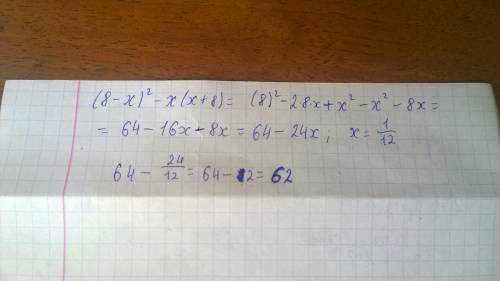 (8-x)² - x(x+8) = (8)² - 2·8·x + x² - x² - 8x =
= 64 - 16x - 8x = 64 - 24x ; x = 1/12
64 - 24/12 = 64 - 2 = 62